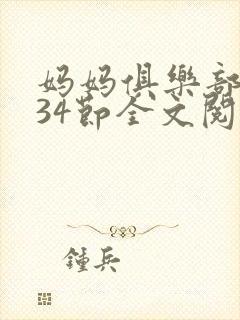 妈妈俱樂部
34節全文閱
鍾兵